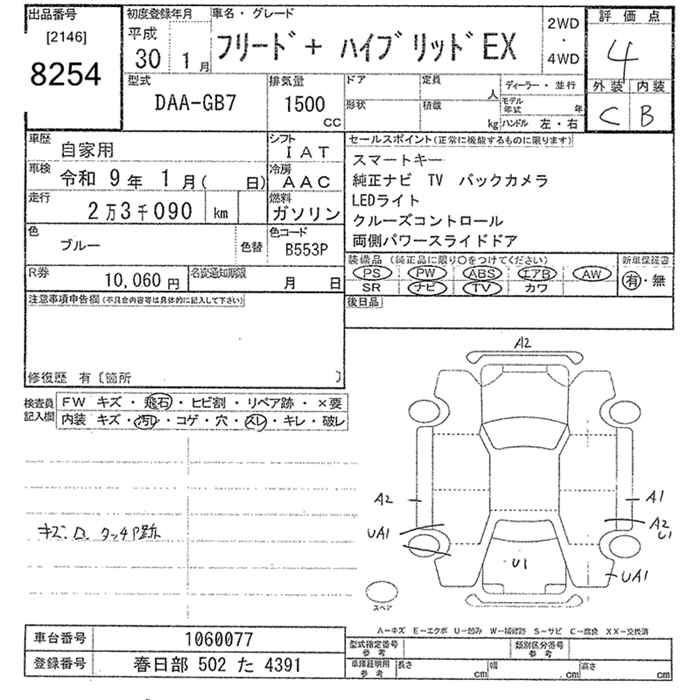 出品番号 初度登録年月 車名・グレード 2WD・4WD 評価点
[2146] 平成 30 1月 フリード+ ハイブリッドEX 4
8254
型式 排気量 ドア 定員 ディーラー・並行 外装 内装
DAA-GB7 1500 CC 人 モデル年式 年 C B
形状 積載 kg ハンドル 左・右
車歴 自家用 シフト IAT セールスポイント(正常に機能するものに限ります)
車検 令和 9年 1月( 日) 冷房 AAC スマートキー
走行 2万3千090 km 燃料 ガソリン 純正ナビ TV バックカメラ
LEDライト
クルーズコントロール
両側パワースライドドア
色 ブルー 色替 色コード B553P
装備品(純正品に限り○をつけてください) 新車保証書
PS PW ABS エアB AW 有・無
SR ナビ TV カワ
R券 10,060円 名変通知期限 月 日
後日品
注意事項申告欄(不具合内容等は具体的に記入して下さい)
修復歴 有〔箇所 〕
検査員記入欄 FW キズ・飛石・ヒビ割・リペア跡・×要
内装 キズ・汚れ・コゲ・穴・スレ・キレ・破レ
A2
A2 A1
UA1 A2
U1
キズ.ロ タッチP跡
U1
UA1
スペア
A―キズ E―エクボ U―凹み W―補修跡 S―サビ C―腐食 XX―交換済
車台番号 1060077 型式指定番号 参考 類別区分番号 参考
登録番号 春日部 502 た 4391 車庫証明用 参考 長さ cm 幅 cm 高さ cm